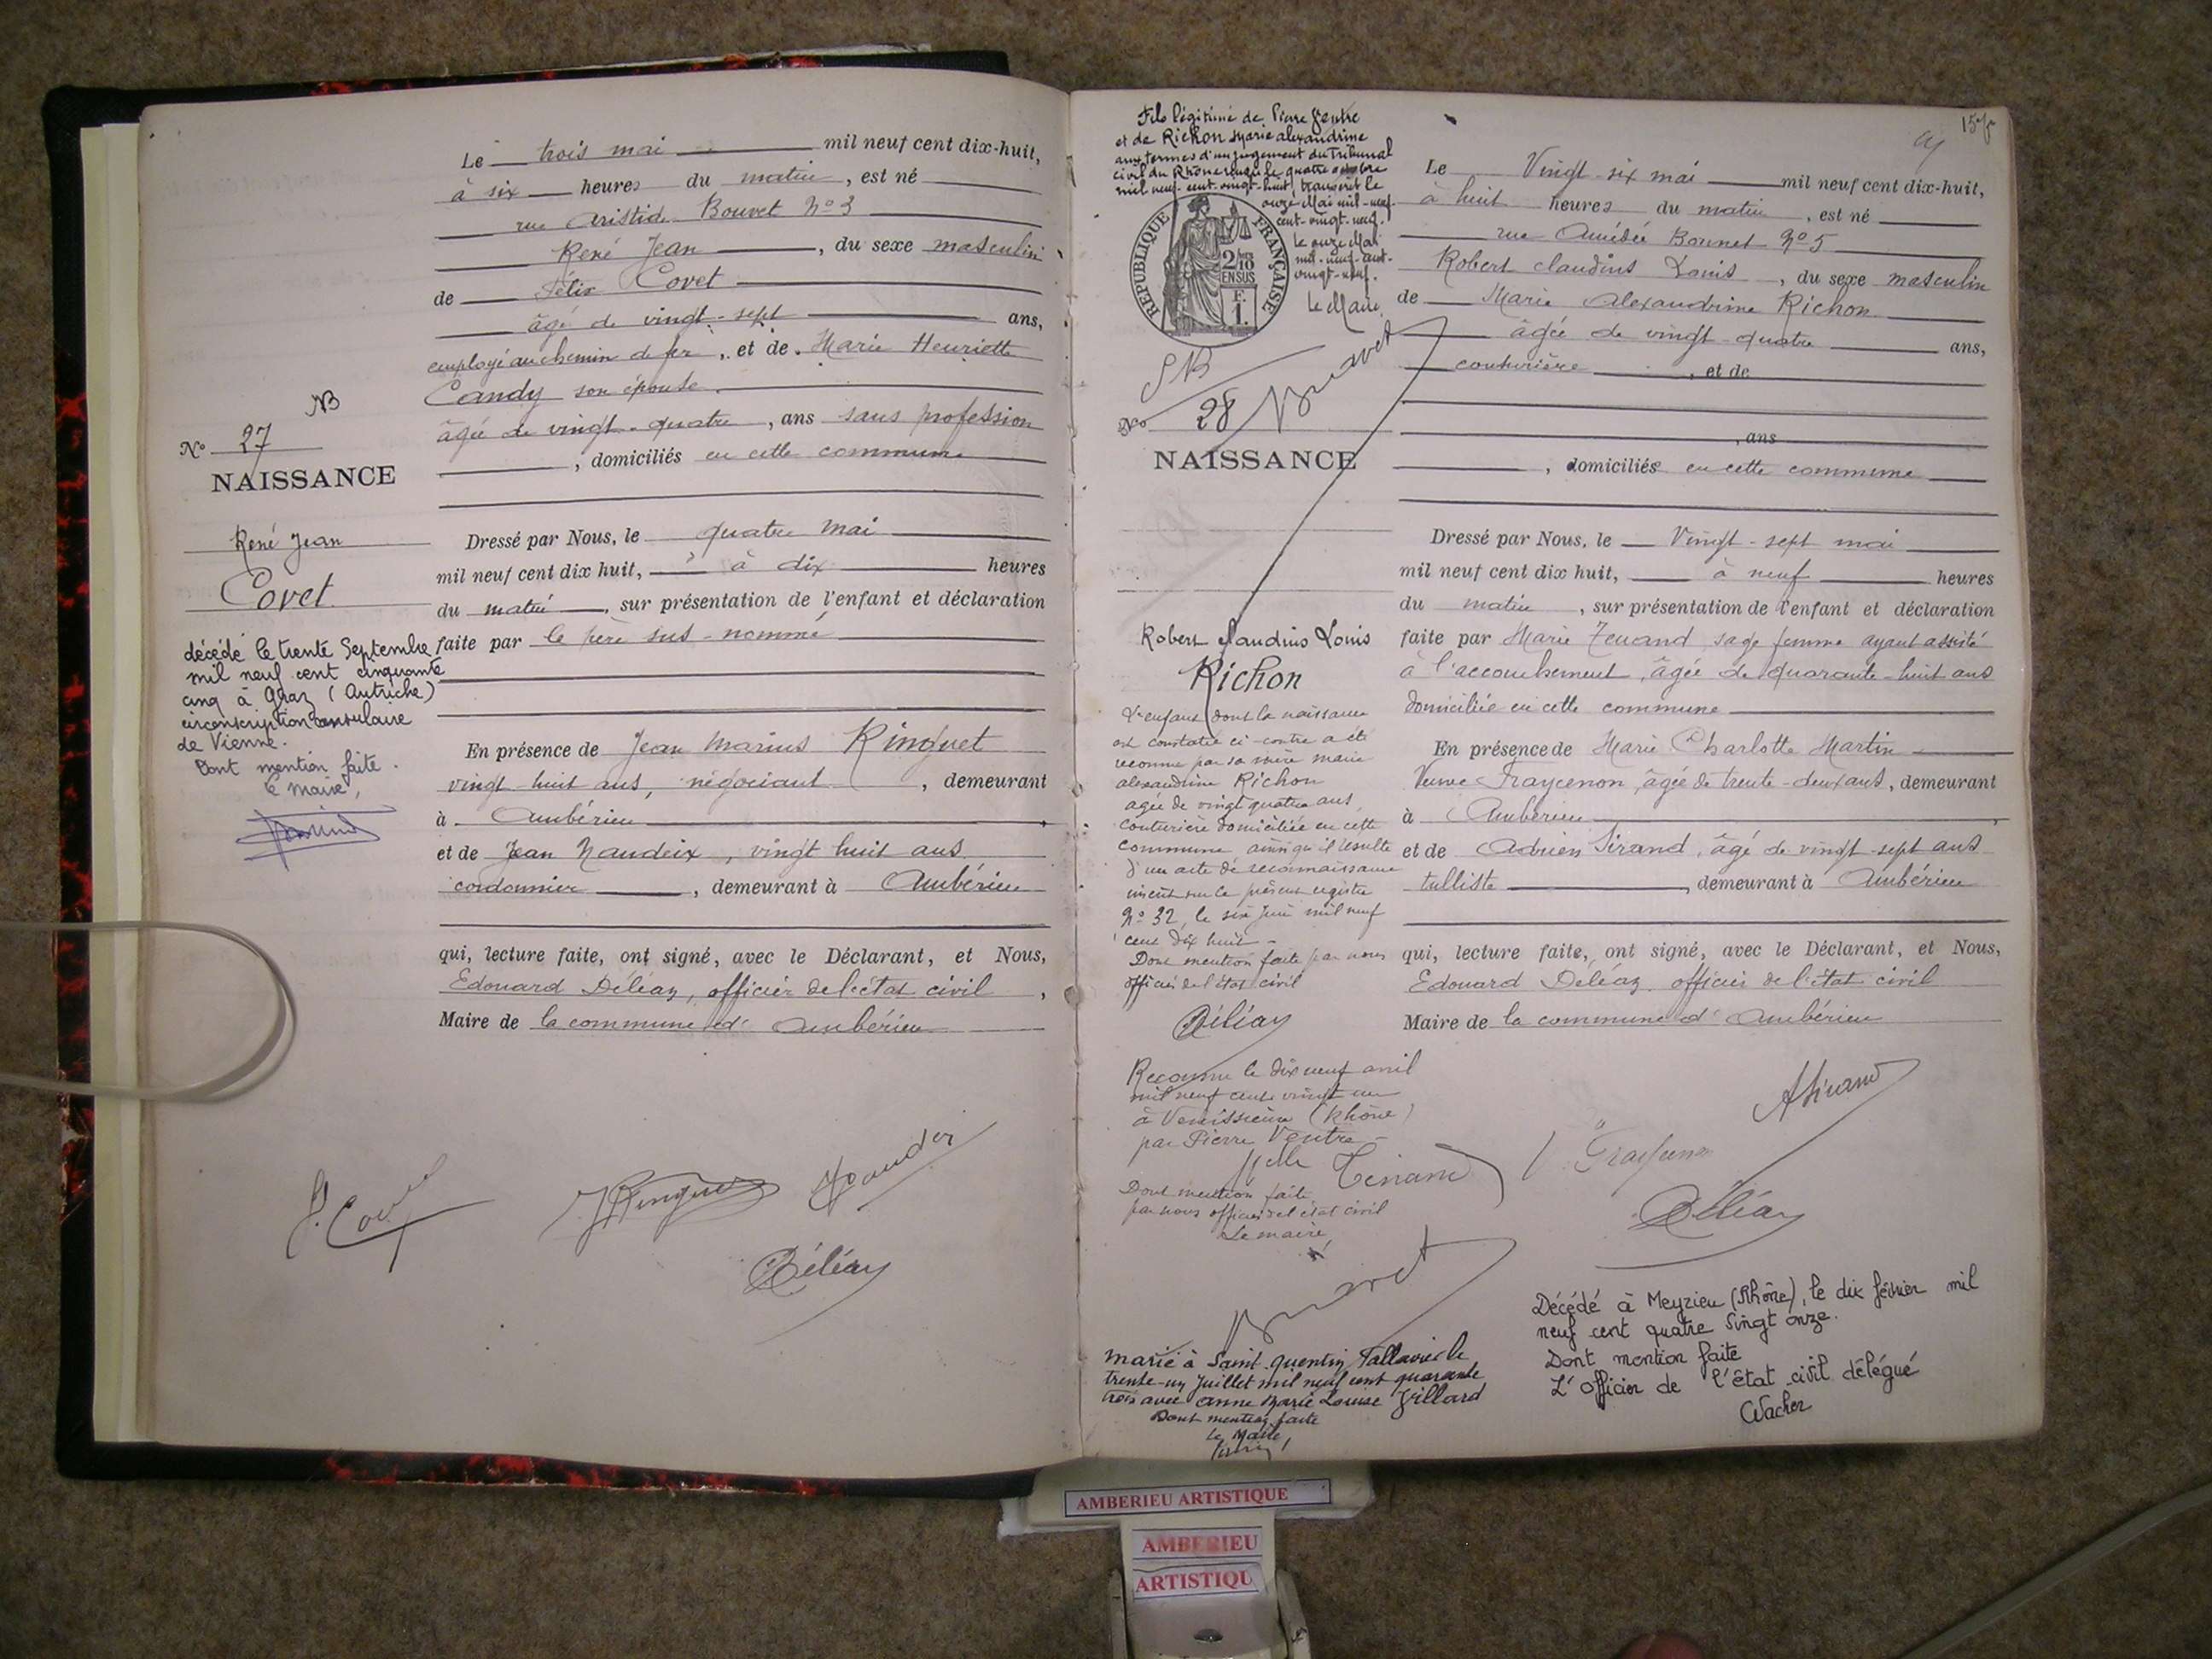 Le trois mai mil neuf cent dix-huit,
à six heures du matin, est né
rue Aristide Bouvet N° 3
René Jean, du sexe masculin
de Félix Covet
âgé de vingt-sept ans,
employé au chemin de fer, et de Marie Henriette
Candy son épouse.
âgée de vingt-quatre, ans sans profession
, domiciliés en cette commune
NB
N° 27
NAISSANCE
René Jean
Covet
décédé le trente Septembre
mil neuf cent cinquante
cinq à Graz (Autriche)
circonscription consulaire
de Vienne.
Dont mention faite.
le Maire,
Dressé par Nous, le quatre mai
mil neuf cent dix huit, à dix heures
du matin, sur présentation de l'enfant et déclaration
faite par le père sus-nommé
En présence de Jean Marius Ringuet
vingt-huit ans, négociant, demeurant
à Ambérieu
et de Jean Naudeix, vingt huit ans
cordonnier, demeurant à Ambérieu
qui, lecture faite, ont signé, avec le Déclarant, et Nous,
Edouard Déléaz, officier de l'état civil,
Maire de la commune d'Ambérieu
Déléaz
Fils légitimé de Pierre Ventre
et de Richon Marie Alexandrine
aux termes d'un jugement du Tribunal
civil du Rhône rendu le quatre octobre
mil neuf-cent-vingt-huit, transcrit le
onze Mai mil-neuf-
cent-vingt-neuf.
Le onze Mai
mil-neuf-cent-
vingt-neuf.
Le Maire,
REPUBLIQUE FRANÇAISE
2/10
EN SUS
F.
1.
N° 28
NAISSANCE
Robert Claudius Louis
Richon
L'enfant dont la naissance
est constatée ci-contre a été
reconnu par sa mère Marie
Alexandrine Richon
âgée de vingt quatre ans,
couturière domiciliée en cette
commune ainsi qu'il résulte
d'un acte de reconnaissance
inscrit sur le présent registre
N° 32, le six juin mil neuf
cent dix huit -
Dont mention faite par nous
officier de l'état civil
Déléaz
Reconnu le dix neuf avril
mil neuf cent vingt un
à Venissieux (Rhône)
par Pierre Ventre -
Dont mention faite
par nous officier de l'état civil
Le maire,
Marié à Saint-Quentin Fallavier le
trente-un Juillet mil neuf cent quarante
trois avec Anne Marie Louise Jillard
Dont mention faite
Le Maire
15
Le Vingt-six mai mil neuf cent dix-huit,
à huit heures du matin, est né
rue Amédée Bonnet N° 5
Robert Claudius Louis, du sexe masculin
de Marie Alexandrine Richon
âgée de vingt-quatre ans,
couturière, et de
, ans
, domiciliés en cette commune
Dressé par Nous, le Vingt-sept mai
mil neuf cent dix huit, à neuf heures
du matin, sur présentation de l'enfant et déclaration
faite par Marie Tenand sage femme ayant assisté
à l'accouchement, âgée de quarante-huit ans
domiciliée en cette commune
En présence de Marie Charlotte Martin
Veuve Fraycenon, âgée de trente-deux ans, demeurant
à Ambérieu
et de Adrien Sirand, âgé de vingt-sept ans
tulliste, demeurant à Ambérieu
qui, lecture faite, ont signé, avec le Déclarant, et Nous,
Edouard Déléaz officier de l'état civil
Maire de la commune d'Ambérieu
ASirand
Tenand
Déléaz
Décédé à Meyzieu (Rhône), le dix février mil
neuf cent quatre vingt onze.
Dont mention faite
L'officier de l'état civil délégué
AMBERIEU ARTISTIQUE
AMBERIEU
ARTISTIQU